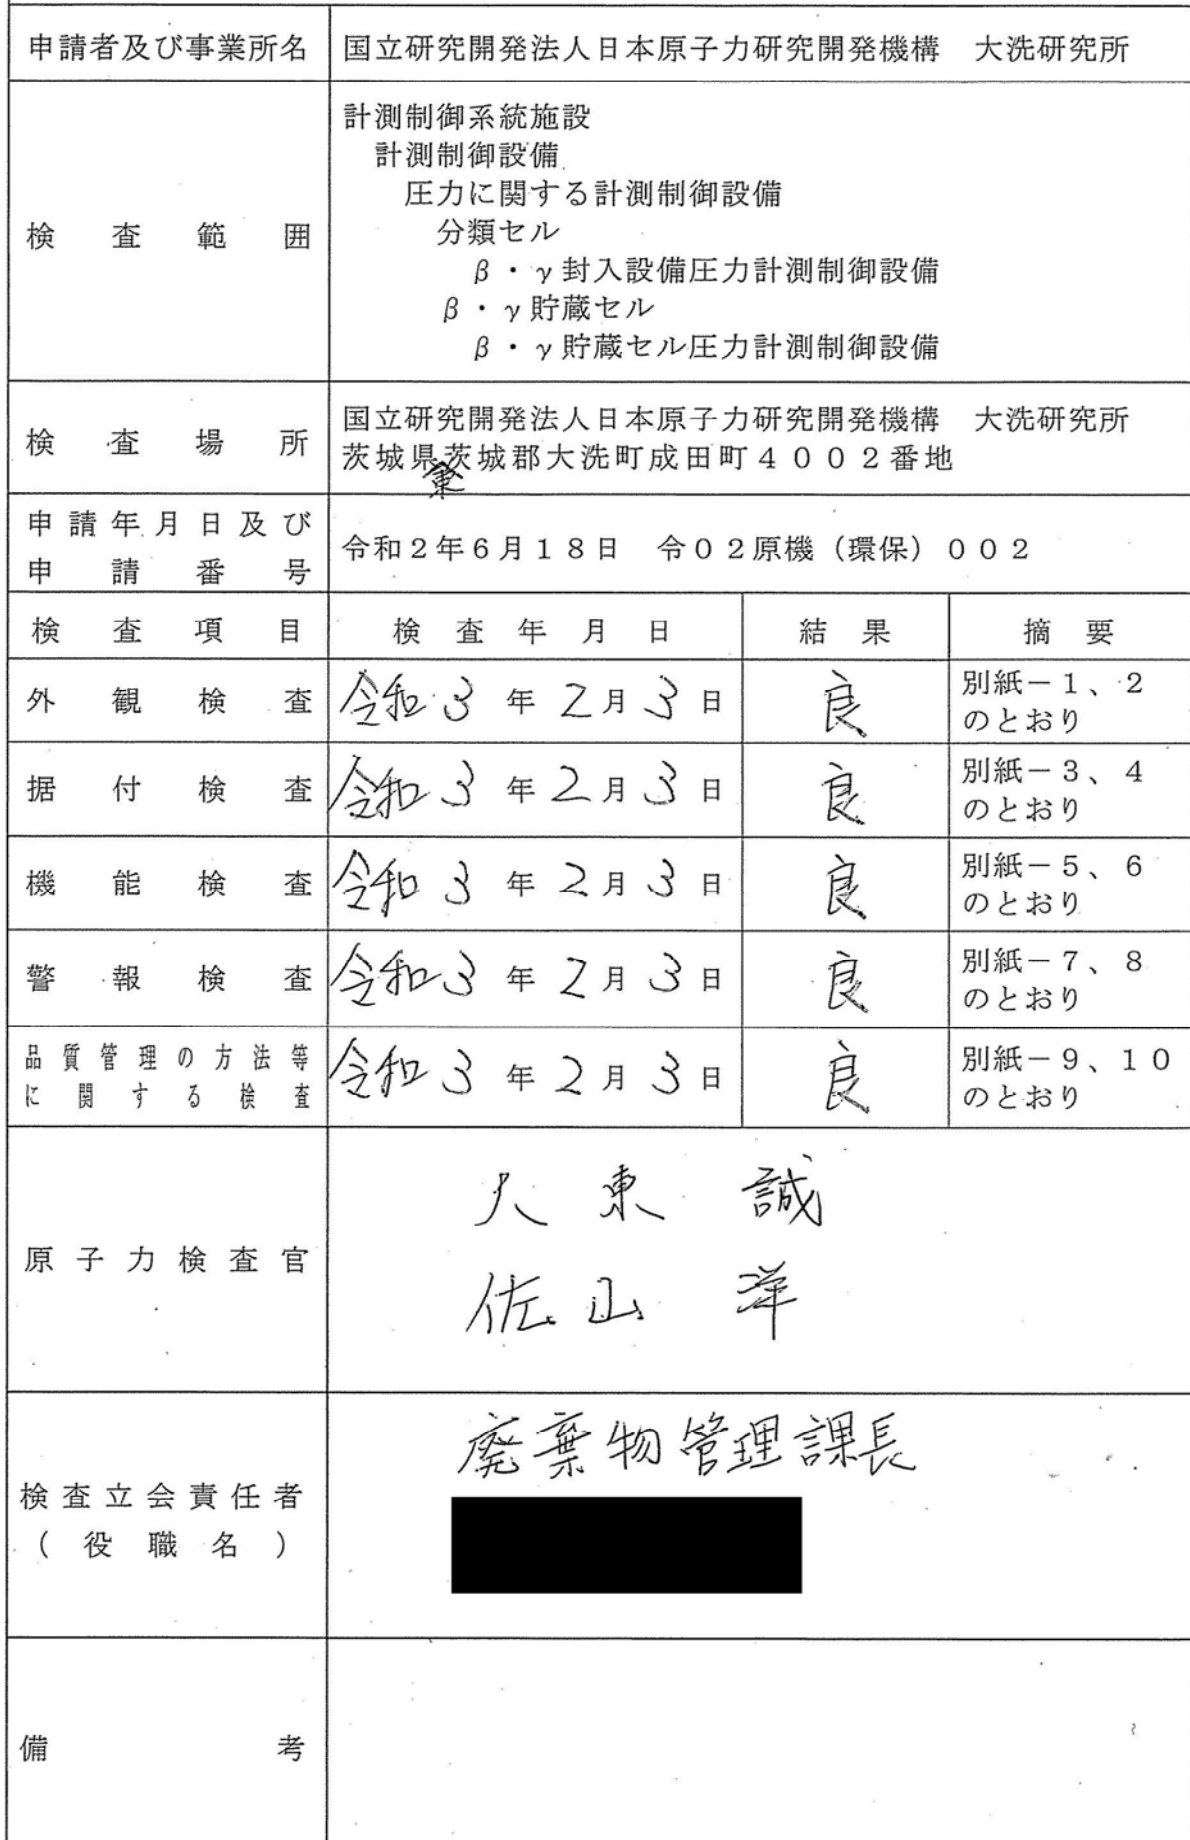 申請者及び事業所名 国立研究開発法人日本原子力研究開発機構 大洗研究所
検査範囲
計測制御系統施設
計測制御設備
圧力に関する計測制御設備
分類セル
β・γ封入設備圧力計測制御設備
β・γ貯蔵セル
β・γ貯蔵セル圧力計測制御設備
検査場所
国立研究開発法人日本原子力研究開発機構 大洗研究所
茨城県茨城郡大洗町成田町4002番地
東
申請年月日及び
申請番号
令和2年6月18日 令02原機(環保)002
検査項目 検査年月日 結果 摘要
外観検査 令和3年2月3日 良 別紙-1、2
のとおり
据付検査 令和3年2月3日 良 別紙-3、4
のとおり
機能検査 令和3年2月3日 良 別紙-5、6
のとおり
警報検査 令和3年2月3日 良 別紙-7、8
のとおり
品質管理の方法等
に関する検査
令和3年2月3日 良 別紙-9、10
のとおり
原子力検査官
大東 誠
佐山 洋
検査立会責任者
(役職名)
廃棄物管理課長
備考